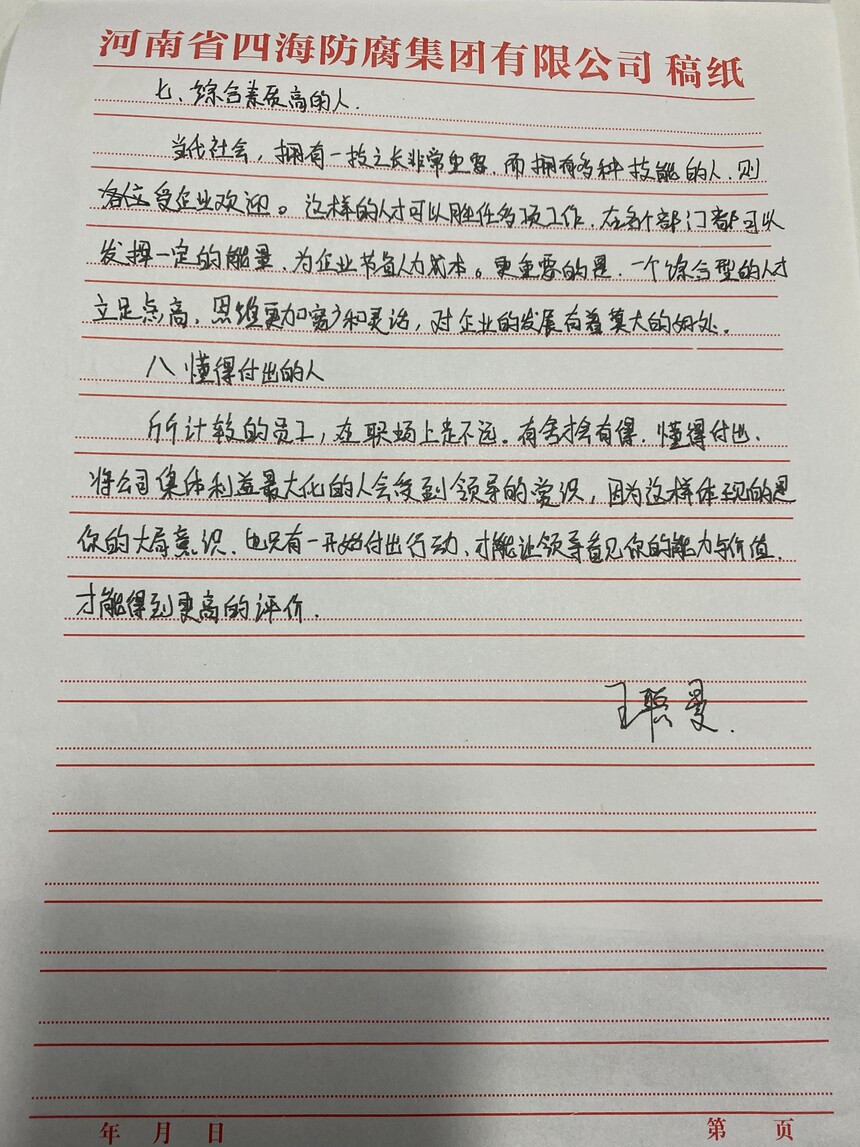 河南省四海防腐集团有限公司 稿纸
七、综合素质高的人.
当代社会，拥有一技之长非常重要、而拥有多种技能的人、则
各位受企业欢迎。这样的人才可以胜任多项工作、在各个部门都可以
发挥一定的能量、为企业节省人力成本。更重要的是、一个综合型的人才
立足点高、思维更加宽广和灵活，对企业的发展有着莫大的好处。
八、懂得付出的人
斤斤计较的员工，在职场上走不远。有舍才会有得、懂得付出、
将公司集体利益最大化的人会受到领导的赏识，因为这样体现的是
你的大局意识、也只有一开始付出行动、才能让领导看见你的能力与价值、
才能得到更高的评价.
王聪曼.
年 月 日
第 页